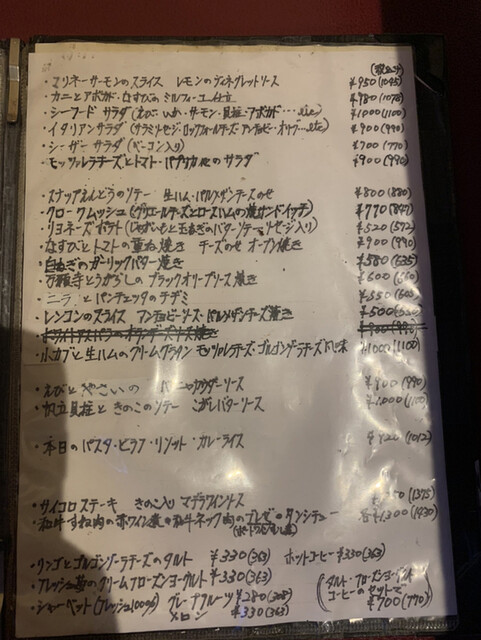 (税込み)
・マリネーサーモンのスライス レモンのヴィネグレットソース ¥950(1045)
・カニとアボカド・白すびみ ミルフィーユ仕立 ¥980(1078)
・シーフードサラダ(えび・いか・サーモン・貝柱・アボガド…etc) ¥1000(1100)
・イタリアンサラダ(サラミソーセージ・ロックフォールチーズ・アンチョビー・オリーブ…etc) ¥900(990)
・シーザーサラダ(ベーコン入り) ¥700(770)
・モッツァレラチーズとトマト・パプリカ他のサラダ ¥900(990)
・スナップえんどうのソテー 生ハム・パルメザンチーズのせ ¥800(880)
・クロークムッシュ(グリエールチーズとロースハムの焼サンドイッチ) ¥770(847)
・リヨネーズポテト(じゃがいもと玉ねぎのバターソテー、ソセージ入り) ¥520(572)
・なすびとトマトの重ね焼き チーズのせオーブン焼き ¥900(990)
・白ねぎのガーリックバター焼き ¥580(635)
・万願寺とうがらしのブラックオリーブソース焼き ¥600(660)
・ニラとパンチェッタのチヂミ ¥550(605)
・レンコンのスライス アンチョビーソース・パルメザンチーズ焼き ¥500(550)
・ホワイトアスパラのオランデーズソース焼き ¥900(990)
・小カブと生ハムのクリームグラタン モッツァレラチーズ・ゴルゴンゾーラチーズ風味 ¥1000(1100)
・えびとやさいの バーニャカウダーソース ¥900(990)
・帆立貝柱ときのこのソテー こがしバターソース ¥1,000(1100)
・本日のパスタ・ピラフ・リゾット・カレーライス ¥920(1012)
・サイコロステーキ きのこ入り マデラワインソース (1375)
・和牛すね肉の赤ワイン煮・和牛ネック肉のブレゼ・タンシチュー 各¥1,300(1430)
・リンゴとゴルゴンゾーラチーズのタルト ¥330(363) ホットコーヒー¥330(363)
・フレッシュ苺のクリームフローズンヨーグルト ¥330(363)
(タルト・フローズンヨーグルト コーヒーのセットで ¥700(770))
・シャーベット(フレッシュ100%) グレープフルーツ ¥280(308)
メロン ¥330(363)